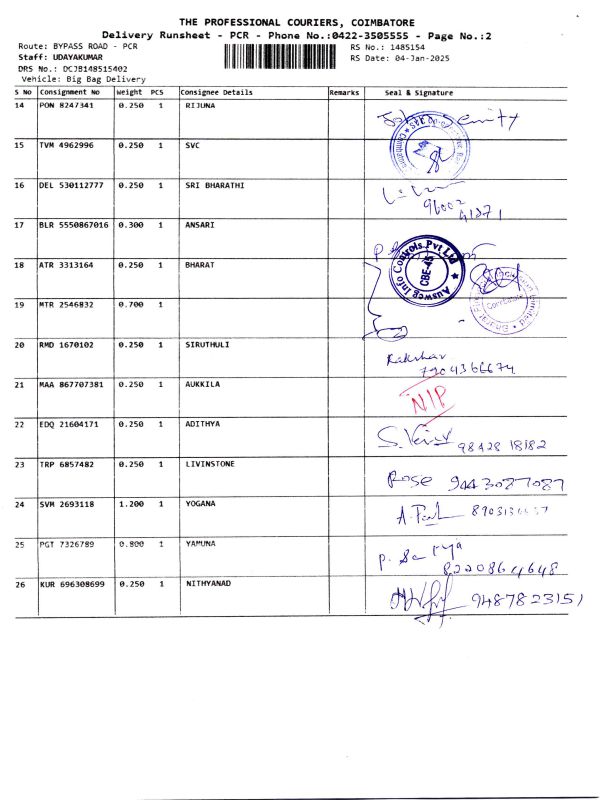 THE PROFESSIONAL COURIERS, COIMBATORE
Delivery Runsheet - PCR - Phone No.:0422-3505555 - Page No.:2
Route: BYPASS ROAD - PCR RS No.: 1485154
Staff: UDAYAKUMAR RS Date: 04-Jan-2025
DRS No.: DCJB148515402
Vehicle: Big Bag Delivery
S No Consignment No Weight PCS Consignee Details Remarks Seal & Signature
14 PON 8247341 0.250 1 RIJUNA
15 TVM 4962996 0.250 1 SVC
16 DEL 530112777 0.250 1 SRI BHARATHI
96002
17 BLR 5550867016 0.300 1 ANSARI
Ausweg Info Controls Pvt Ltd
CBE-45
18 ATR 3313164 0.250 1 BHARAT
Coimbatore
19 MTR 2546832 0.700 1
20 RMD 1670102 0.250 1 SIRUTHULI
7904366674
21 MAA 867707381 0.250 1 AUKKILA NIP
22 EDQ 21604171 0.250 1 ADITHYA 98428 18182
23 TRP 6857482 0.250 1 LIVINSTONE Rose 9443087087
24 SVM 2693118 1.200 1 YOGANA
25 PGT 7326789 0.800 1 YAMUNA P. Sathya
8220864648
26 KUR 696308699 0.250 1 NITHYANAD 9487823151